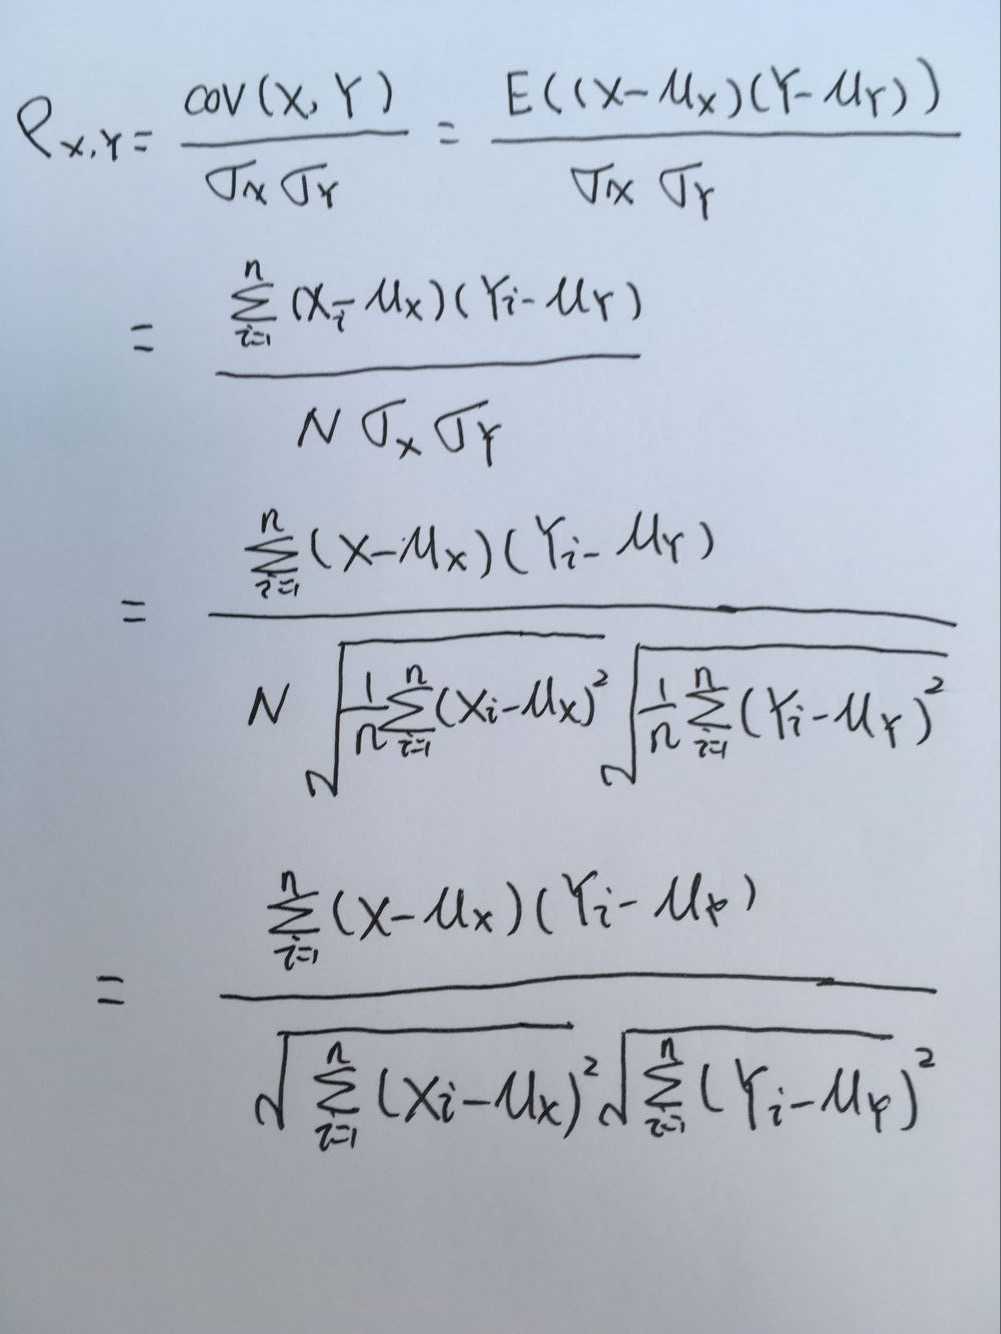 ρ_{X,Y} = \frac{cov(X,Y)}{σ_X σ_Y} = \frac{E((X-μ_X)(Y-μ_Y))}{σ_X σ_Y}
= \frac{\sum_{i=1}^{n}(X_i-μ_X)(Y_i-μ_Y)}{N σ_X σ_Y}
= \frac{\sum_{i=1}^{n}(X-μ_X)(Y_i-μ_Y)}{N \sqrt{\frac{1}{n}\sum_{i=1}^{n}(X_i-μ_X)^2} \sqrt{\frac{1}{n}\sum_{i=1}^{n}(Y_i-μ_Y)^2}}
= \frac{\sum_{i=1}^{n}(X-μ_X)(Y_i-μ_Y)}{\sqrt{\sum_{i=1}^{n}(X_i-μ_X)^2} \sqrt{\sum_{i=1}^{n}(Y_i-μ_Y)^2}}